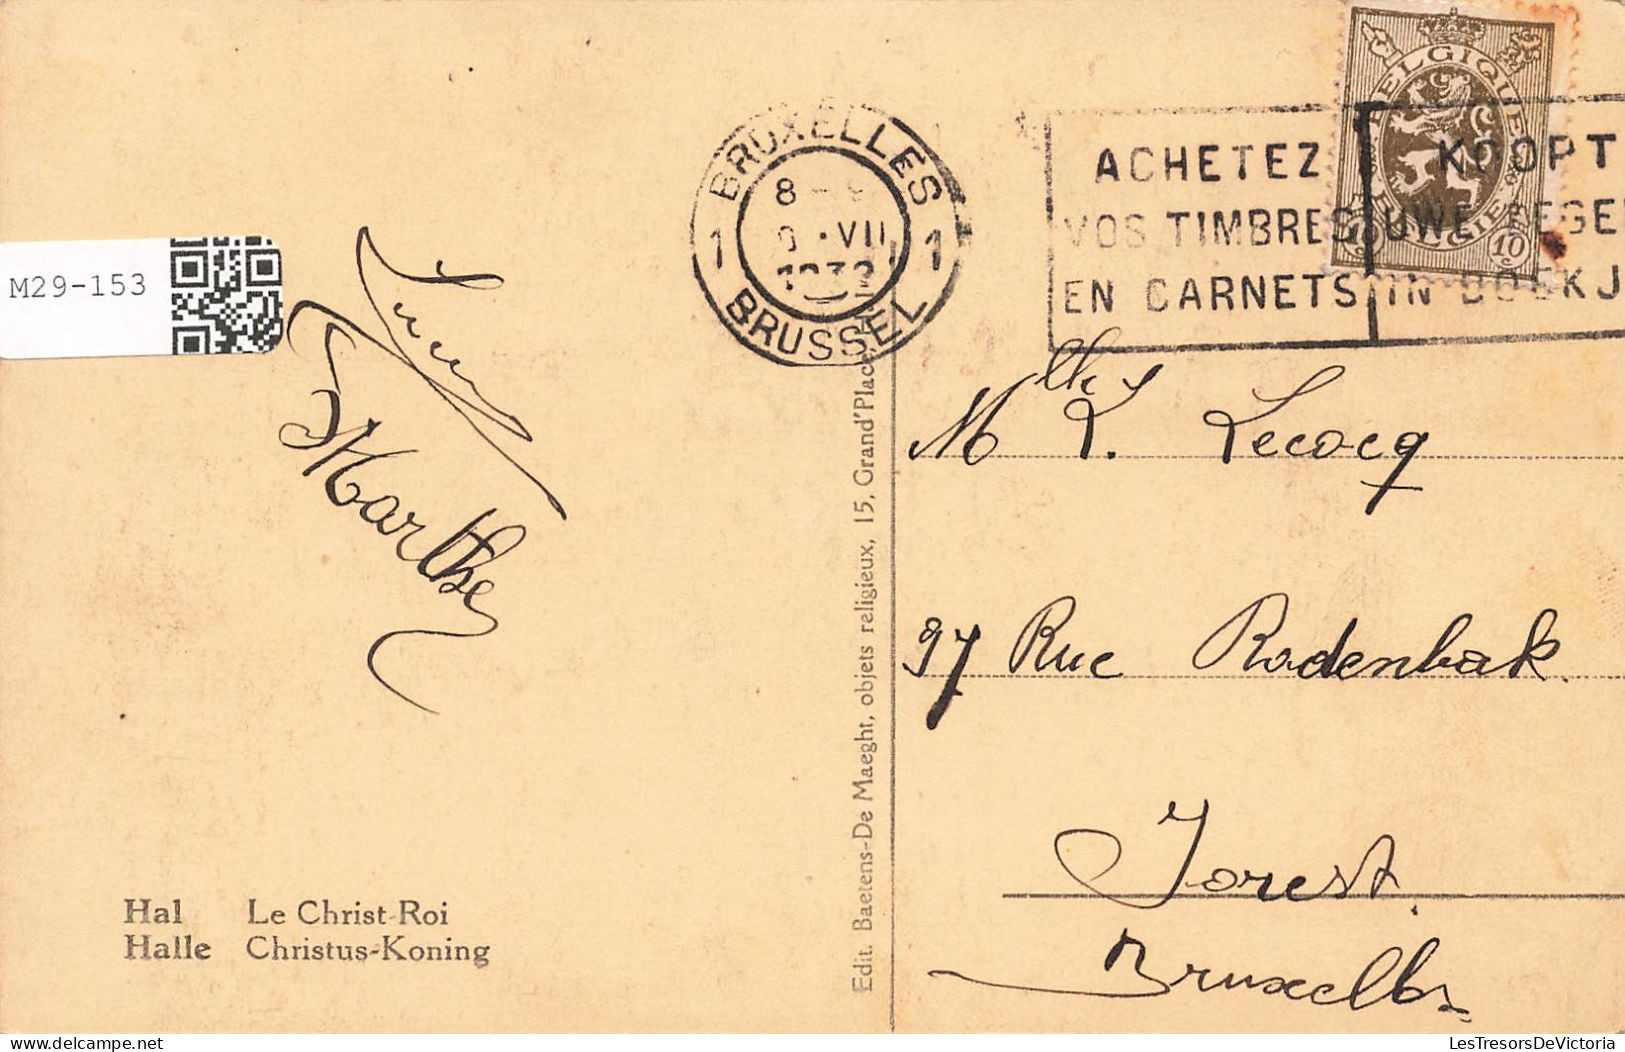 BELGIQUE
BELGIË
10c
BRUXELLES
8-9
VII
1 1
BRUSSEL
ACHETEZ
VOS TIMBRES
EN CARNETS
KOOPT
UWE
IN BOEKJ
M29-153
Marthe
Mlle L. Lecocq
97 Rue Rodenbak.
Forest.
Bruxelles
Edit. Baetens-De Maeght, objets religieux, 15, Grand'Place
Hal Le Christ-Roi
Halle Christus-Koning
LesTresorsDeVictoria